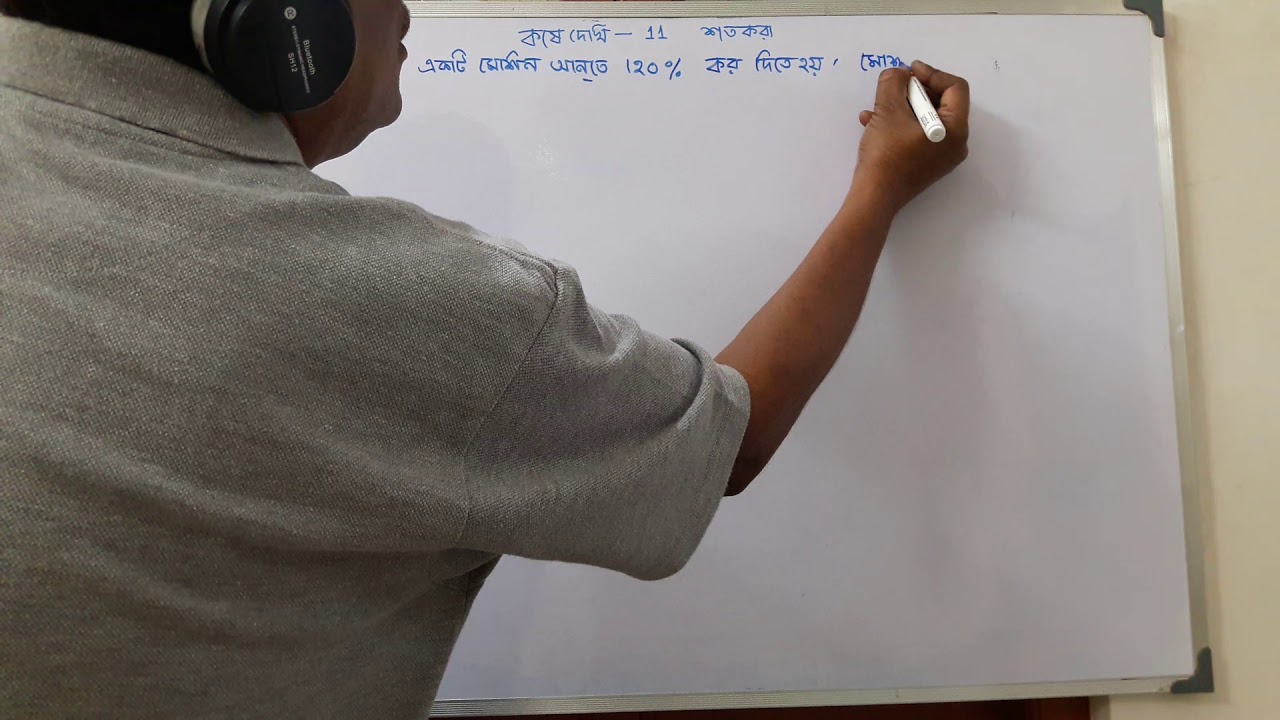 কষে দেখি — 11 শতকরা
একটি মেশিন আনতে ১২০% কর দিতে হয়, মেশ
Bluetooth
SH12